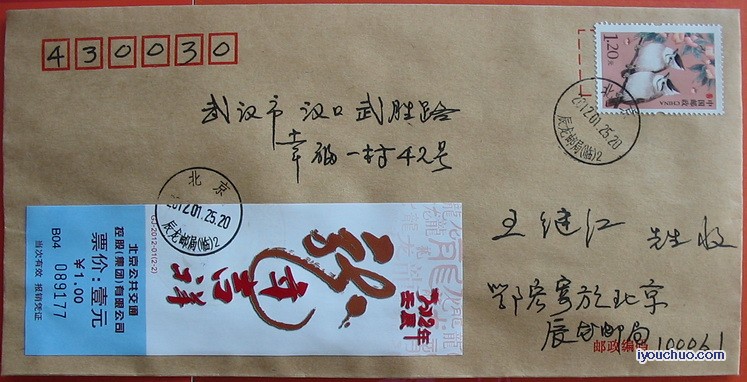 430030
1.20元
中国邮政
CHINA
武汉市 汉口武胜路
幸福一村42号
北京
2012.01.25.20
辰龙邮局(临)2
北京
2012.01.25.20
辰龙邮局(临)2
王继江 先生 收
寄於北京
辰龙邮局
邮政编码 100061
北京公共交通
控股(集团)有限公司
票价:壹元
¥1.00
B04 089177
当次有效 报销凭证
GJ-2012-01(2-2)
龙年吉祥
2012年
壬辰
iyouchuo.com